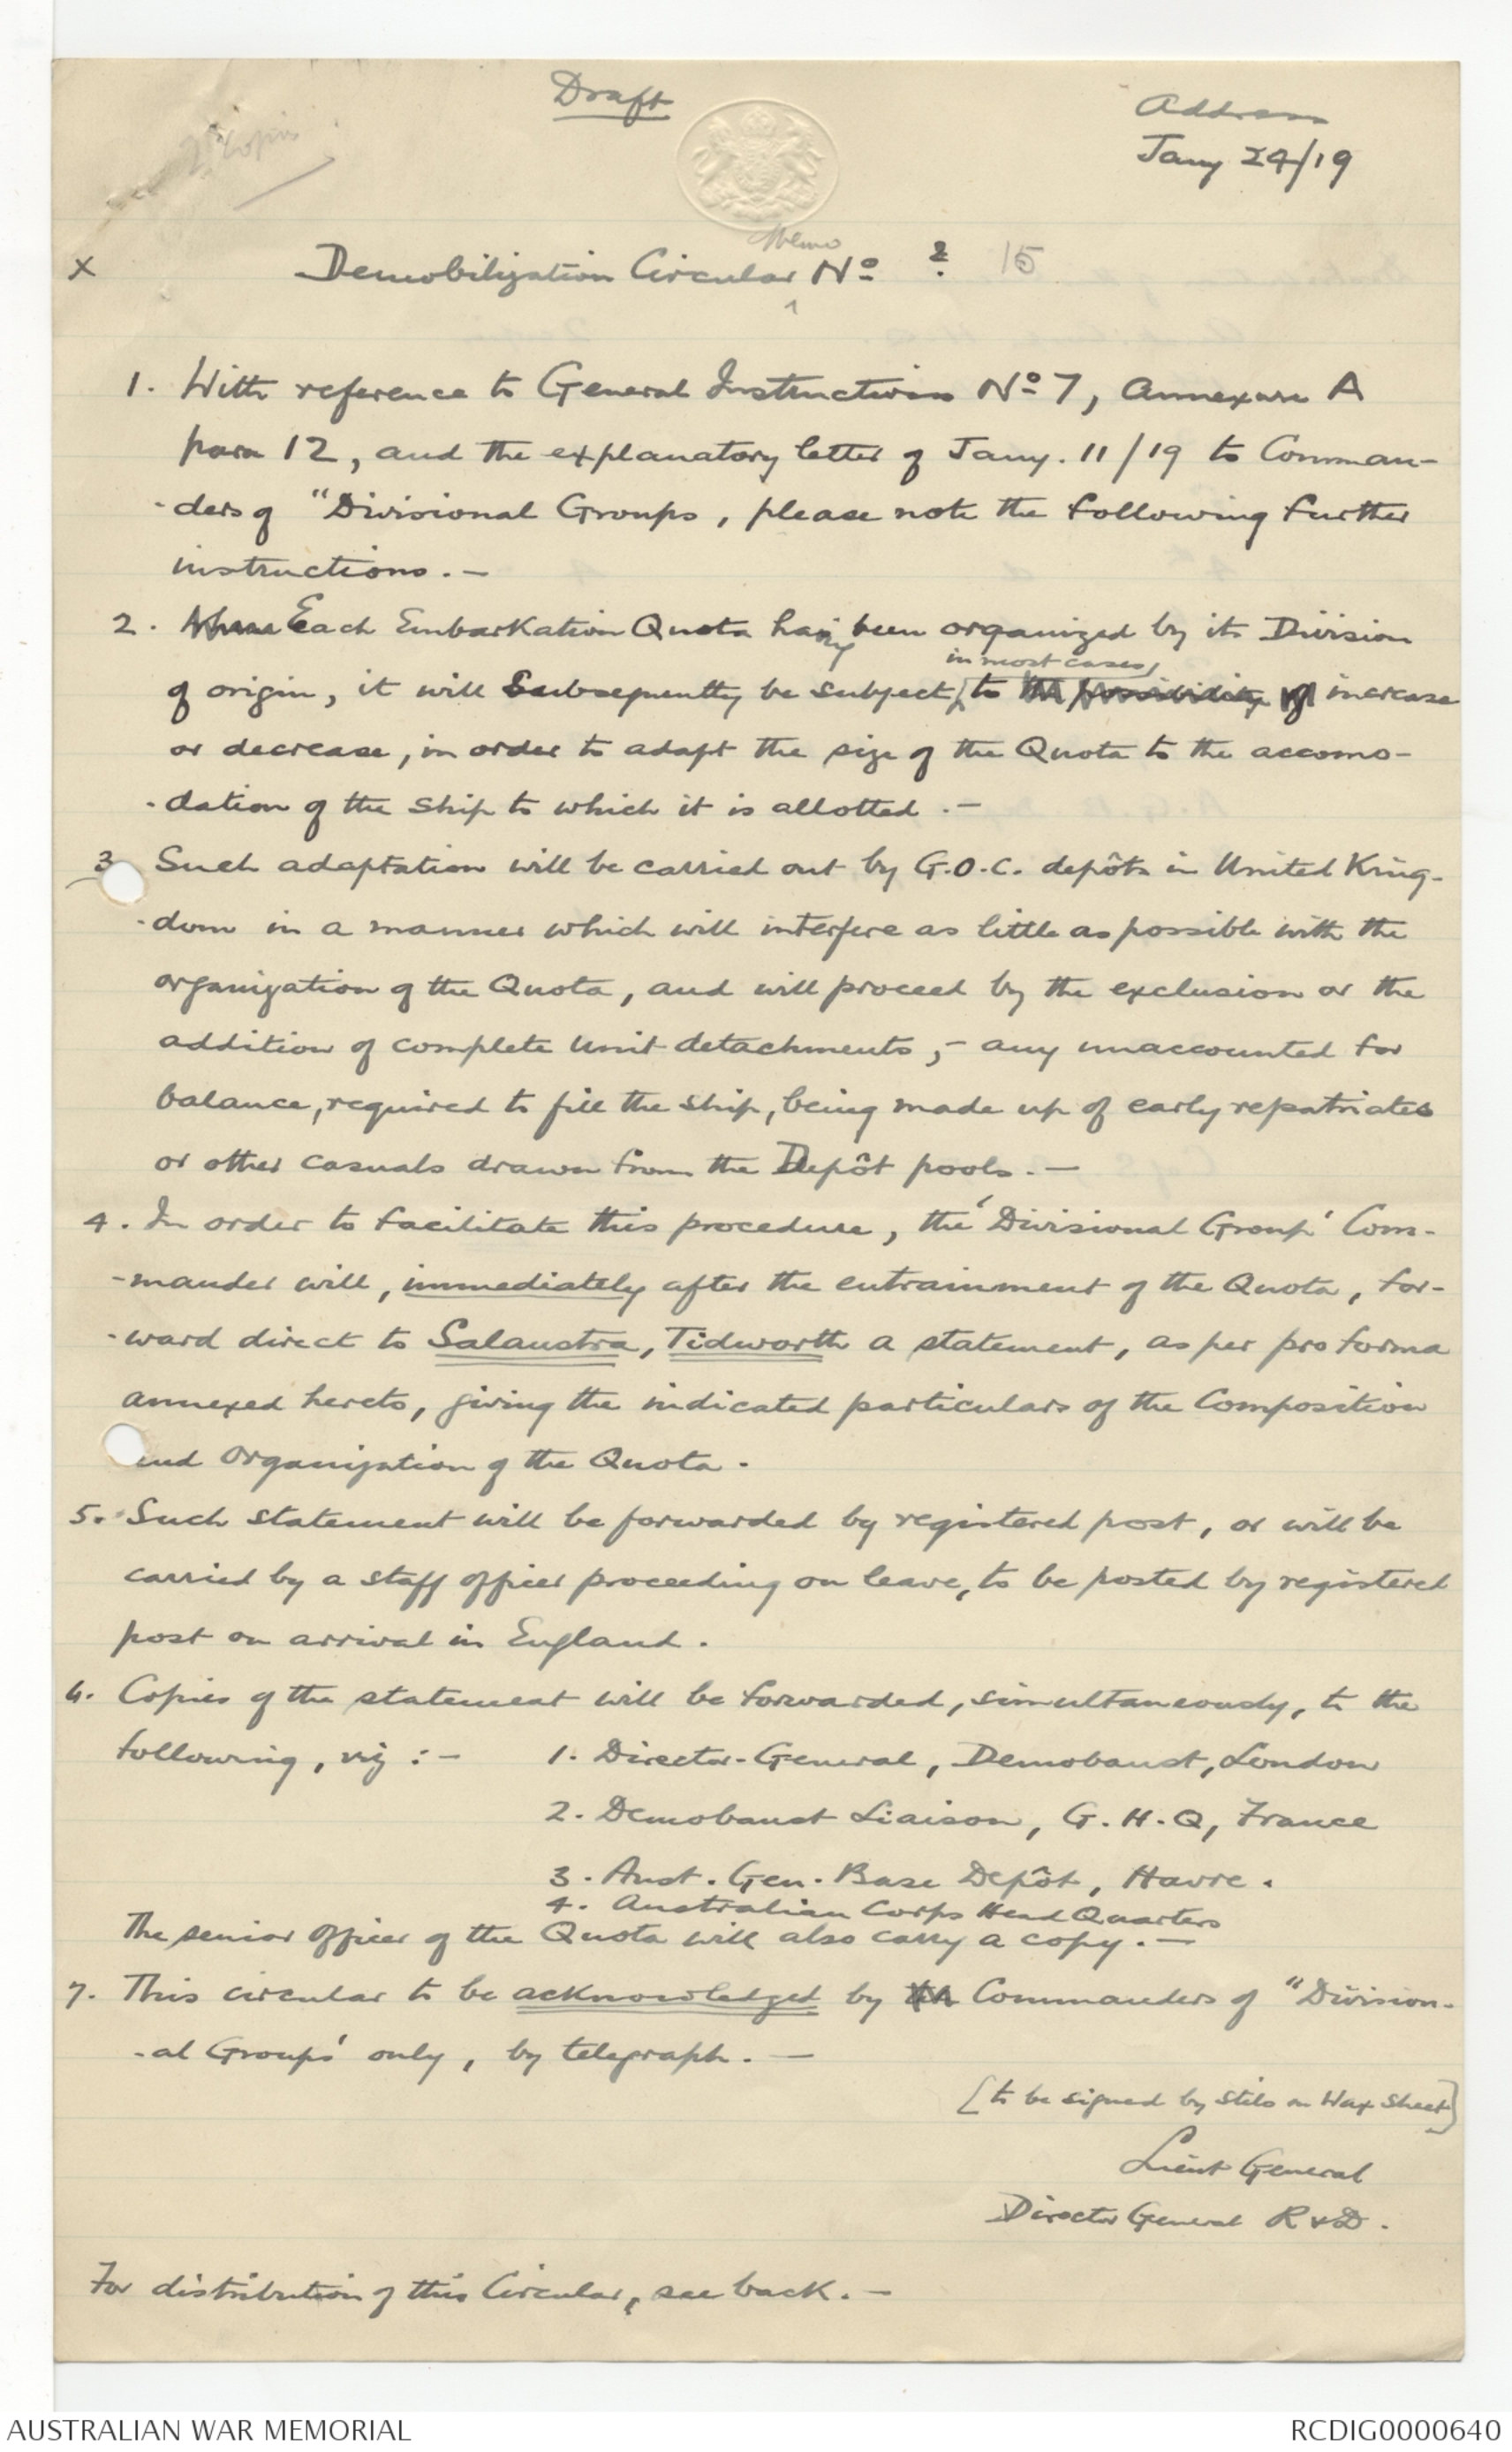 Draft
Address
Copies
Jany 24/19
Memo
x Demobilization Circular No ? 15
1. With reference to General Instructions No 7, Annexure A
para 12, and the explanatory letter of Jany. 11/19 to Comman-
-ders of "Divisional Groups, please note the following further
instructions. -
2. Each Embarkation Quota having been organized by its Division
in most cases,
of origin, it will subsequently be subject, to the possibility of increase
or decrease, in order to adapt the size of the Quota to the accomo-
-dation of the ship to which it is allotted. -
3 Such adaptation will be carried out by G.O.C. depôts in United King-
-dom in a manner which will interfere as little as possible with the
organization of the Quota, and will proceed by the exclusion or the
addition of complete unit detachments, - any unaccounted for
balance, required to fill the ship, being made up of early repatriates
or other casuals drawn from the Depôt pools. -
4. In order to facilitate this procedure, the 'Divisional Group' Com-
-mander will, immediately after the entrainment of the Quota, for-
-ward direct to Salaustra, Tidworth a statement, as per pro forma
annexed hereto, giving the indicated particulars of the Composition
and Organization of the Quota.
5. Such statement will be forwarded by registered post, or will be
carried by a staff officer proceeding on leave, to be posted by registered
post on arrival in England.
6. Copies of the statement will be forwarded, simultaneously, to the
following, viz :- 1. Director-General, Demobaust, London
2. Demobaust Liaison, G.H.Q, France
3. Aust. Gen. Base Depôt, Havre.
4. Australian Corps Head Quarters
The senior officer of the Quota will also carry a copy. -
7. This circular to be acknowledged by the Commanders of "Division-
-al Groups' only, by telegraph. -
[to be signed by stilo on Wax Sheet]
Lieut General
Director General R & D.
For distribution of this Circular, see back. -
AUSTRALIAN WAR MEMORIAL
RCDIG0000640